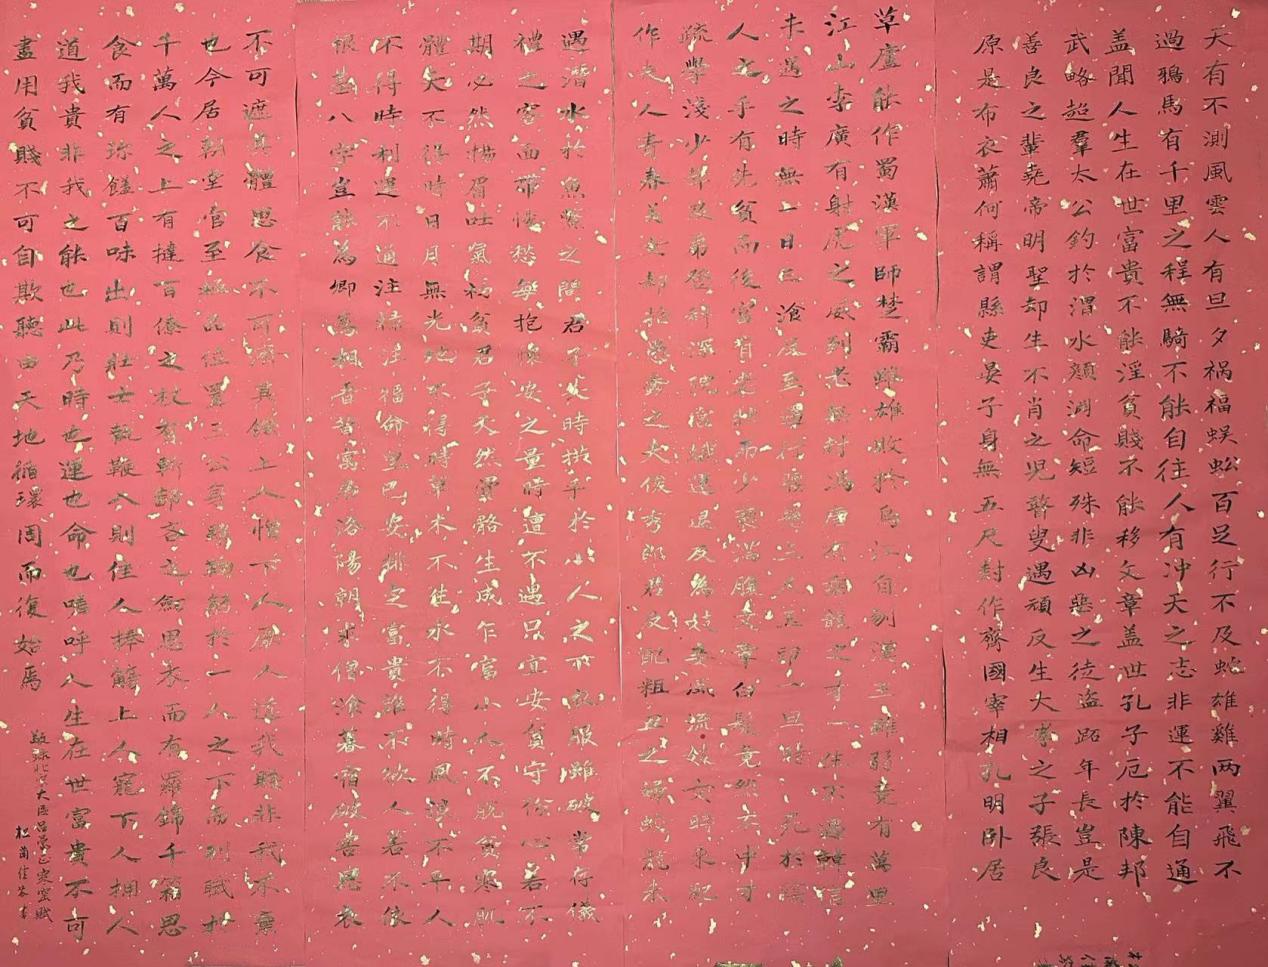 天有不測風雲人有旦夕祸福蜈蚣百足行不及蛇雄雞两翼飛不
過鴉馬有千里之程無騎不能自往人有冲天之志非運不能自通
盖聞人生在世富貴不能淫貧賤不能移文章盖世孔子厄於陳邦
武略超羣太公釣於渭水顏渊命短殊非凶惡之徒盗跖年長豈是
善良之輩堯帝明聖却生不肖之児瞽叟遇頑反生大孝之子張良
原是布衣蕭何稱謂縣吏晏子身無五尺封作齊國宰相孔明卧居
草廬能作蜀漢軍師楚霸雖雄敗於烏江自刎漢王雖弱竟有萬里
江山李廣有射虎之威到老無封馮唐有乘龍之才一生不遇韓信
未遇之時無一日三飡及至遇行腰懸三尺玉印一旦時衰死於陰
人之手有先貧而後富有老壯而少衰滿腹文章白髮竟然不中才
疏學淺少年及第登科深院宮娥運退反為妓妾風流妓女時來配
作夫人青春美女却招愚蠢之夫俊秀郎君反配粗丑之婦蛟龍未
遇潛水於魚鱉之間君子失時拱手於小人之下衣服雖破常存儀
禮之容面帶憂愁每抱懷安之量時遭不遇只宜安貧守份心若不
期必然揚眉吐氣初貧君子天然骨骼生成乍富小人不脫貧寒肌
體天不得時日月無光地不得時草木不生水不得時風浪不平人
不得時利運不通注福注祿命里已安排定富貴誰不欲人若不依
根基八字豈能為卿為相吾昔寓居洛陽朝求僧飡暮宿破窑思衣
不可遮其體思食不可濟其飢上人憎下人厭人道我賤非我不棄
也今居朝堂官至極品位置三公身雖鞠躬於一人之下而列職於
千萬人之上有撻百僚之杖有斬鄙吝之劍思衣而有羅錦千箱思
食而有珍饈百味出則壯士執鞭入則佳人捧觴上人寵下人擁人
道我貴非我之能也此乃時也運也命也嗟呼人生在世富貴不可
盡用貧賤不可自欺聽由天地循環周而復始焉
敬錄北宋大臣吕蒙正寒窑賦